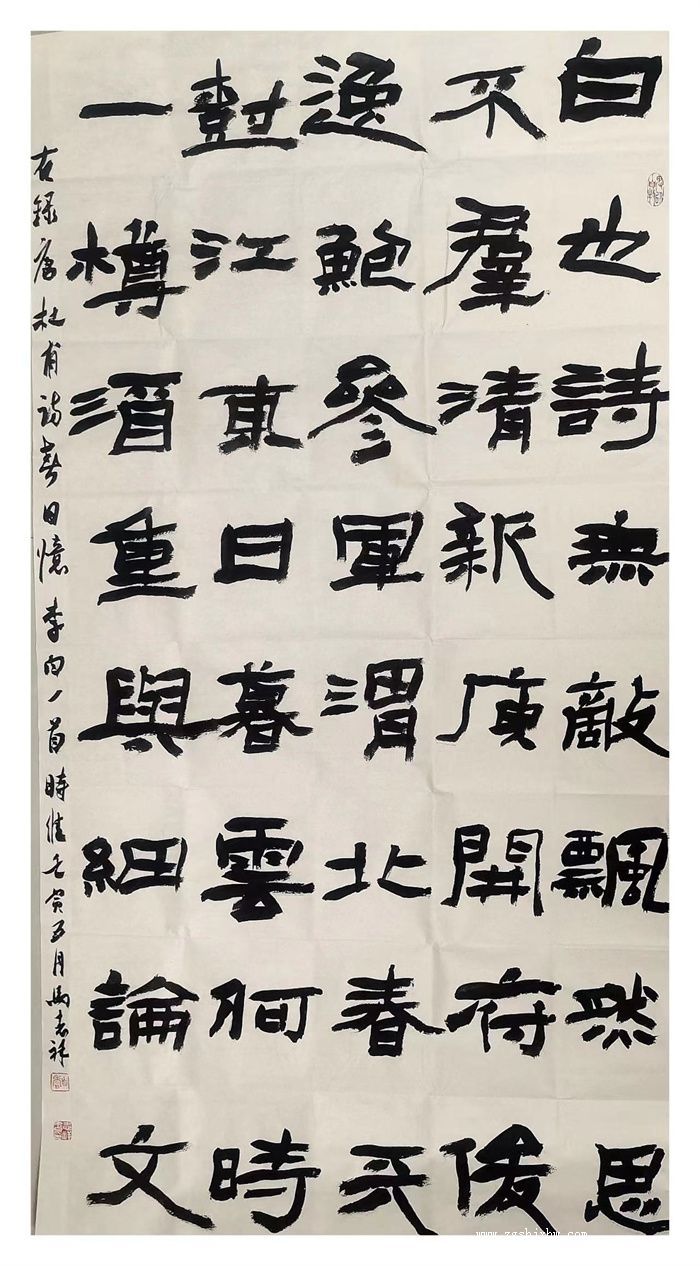 白也詩無敵飄然思
不羣清新庾開府俊
逸鮑參軍渭北春天
尌江東日暮雲何時
一樽酒重與細論文
右録唐杜甫詩春日憶李白一首時維壬寅五月馬志祥